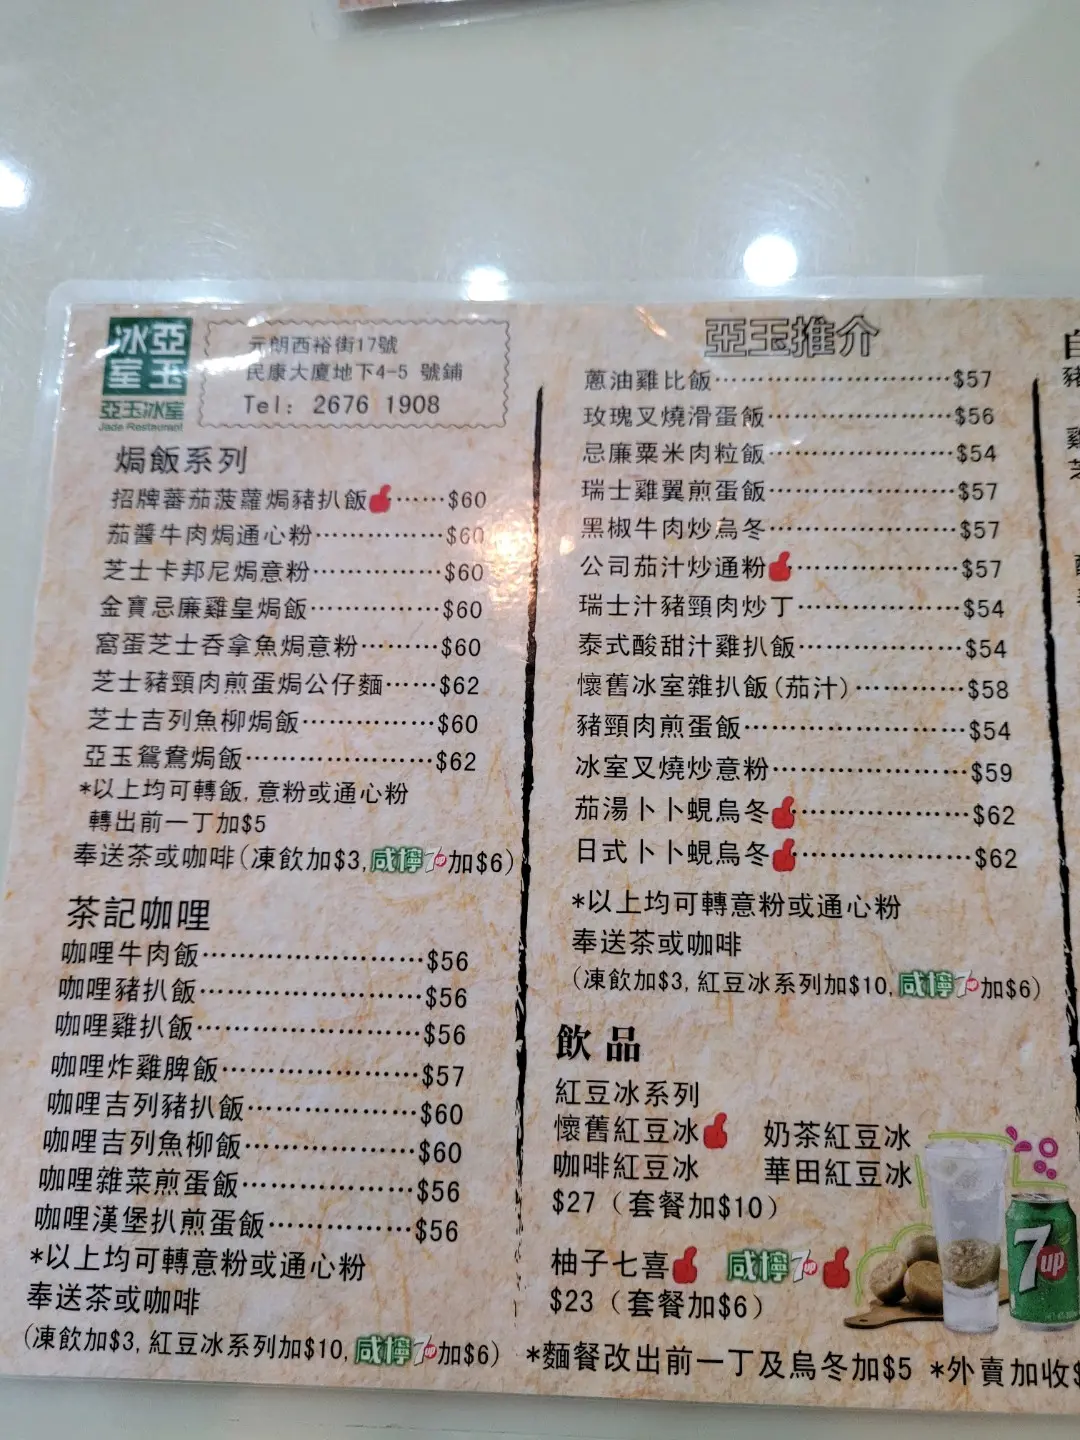 冰亞
室玉
亞玉冰室
Jade Restaurant
元朗西裕街17號
民康大廈地下4-5 號鋪
Tel: 2676 1908
焗飯系列
招牌蕃茄菠蘿焗豬扒飯……$60
茄醬牛肉焗通心粉……………$60
芝士卡邦尼焗意粉……………$60
金寶忌廉雞皇焗飯……………$60
窩蛋芝士吞拿魚焗意粉………$60
芝士豬頸肉煎蛋焗公仔麵……$62
芝士吉列魚柳焗飯……………$60
亞玉鴛鴦焗飯…………………$62
*以上均可轉飯,意粉或通心粉
轉出前一丁加$5
奉送茶或咖啡(凍飲加$3,咸檸7up加$6)
茶記咖哩
咖哩牛肉飯……………………$56
咖哩豬扒飯……………………$56
咖哩雞扒飯……………………$56
咖哩炸雞脾飯…………………$57
咖哩吉列豬扒飯………………$60
咖哩吉列魚柳飯………………$60
咖哩雜菜煎蛋飯………………$56
咖哩漢堡扒煎蛋飯……………$56
*以上均可轉意粉或通心粉
奉送茶或咖啡
(凍飲加$3,紅豆冰系列加$10,咸檸7up加$6)
亞玉推介
蔥油雞比飯……………………$57
玫瑰叉燒滑蛋飯………………$56
忌廉粟米肉粒飯………………$54
瑞士雞翼煎蛋飯………………$57
黑椒牛肉炒烏冬………………$57
公司茄汁炒通粉………………$57
瑞士汁豬頸肉炒丁……………$54
泰式酸甜汁雞扒飯……………$54
懷舊冰室雜扒飯(茄汁)…………$58
豬頸肉煎蛋飯…………………$54
冰室叉燒炒意粉………………$59
茄湯卜卜蜆烏冬………………$62
日式卜卜蜆烏冬………………$62
*以上均可轉意粉或通心粉
奉送茶或咖啡
(凍飲加$3,紅豆冰系列加$10,咸檸7up加$6)
飲品
紅豆冰系列
懷舊紅豆冰 奶茶紅豆冰
咖啡紅豆冰 華田紅豆冰
$27（套餐加$10）
柚子七喜 咸檸7up
$23（套餐加$6）
7up
*麵餐改出前一丁及烏冬加$5 *外賣加收$
豬